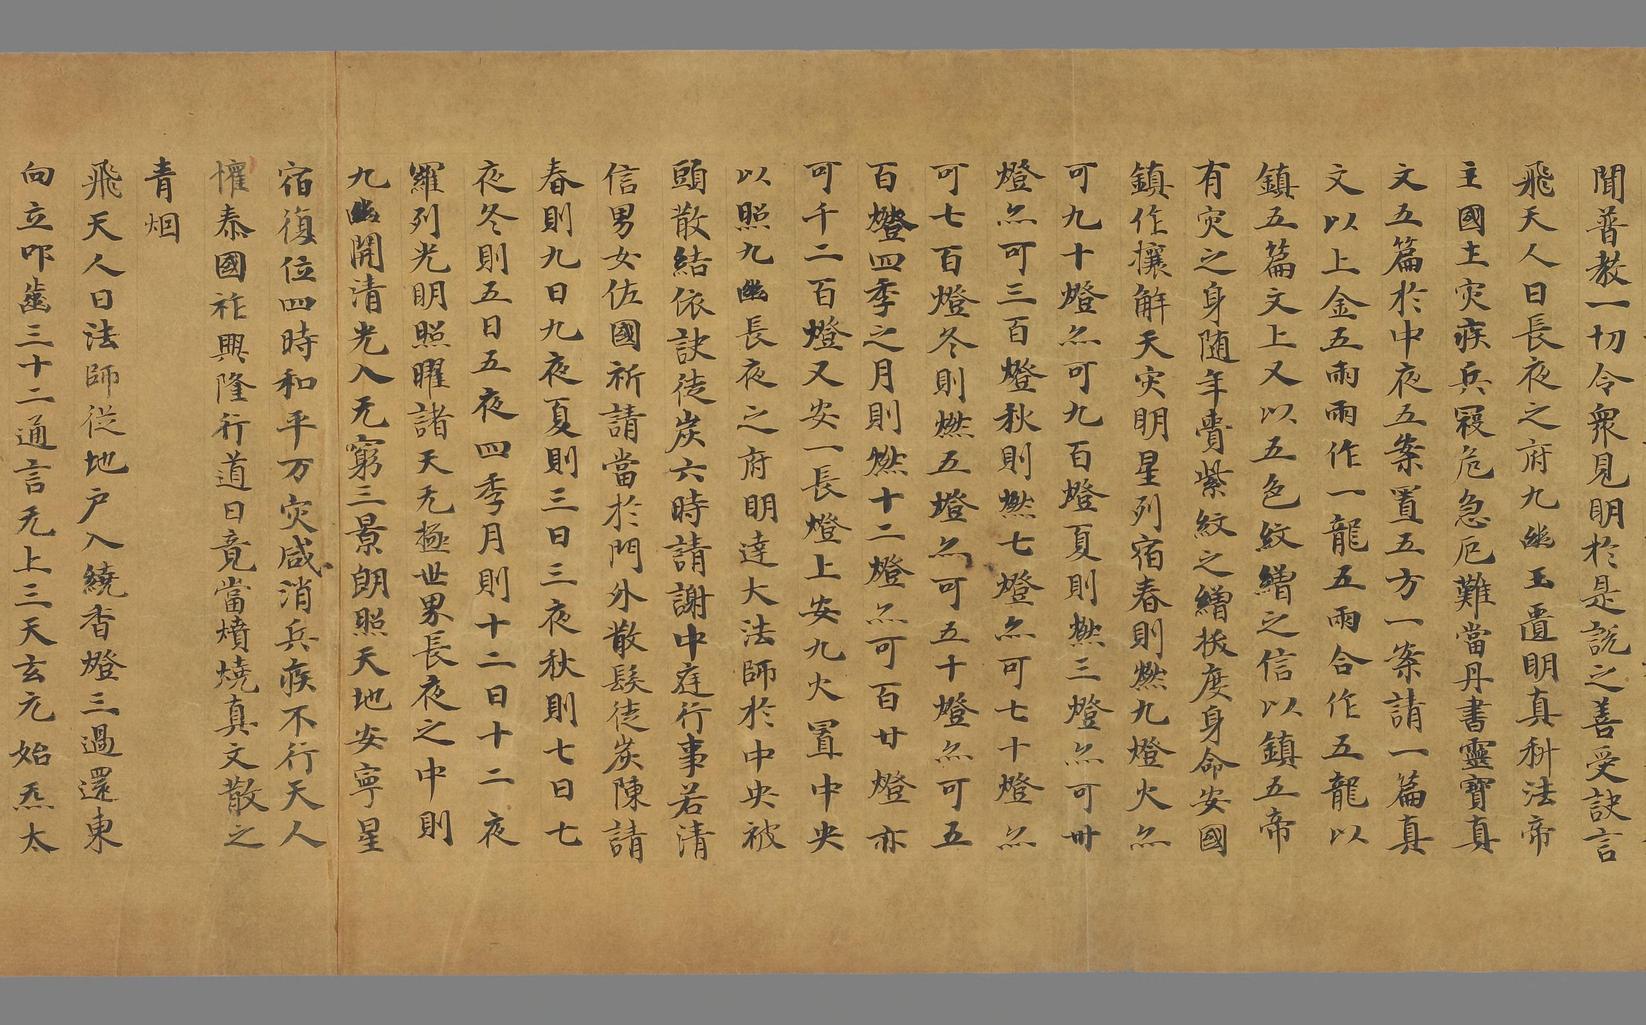 聞普教一切令衆見明於是說之善受訣言
飛天人曰長夜之府九幽玉匱明真科法帝
主國土灾疾兵寇危急厄難當丹書靈寶真
文五篇於中夜五案置五方一案請一篇真
文以上金五兩兩作一龍五兩合作五龍以
鎮五篇文上又以五色紋繒之信以鎮五帝
有灾之身随年賷紫紋之繒拔度身命安國
鎮作攘解天灾明星列宿春則燃九燈火亦
可九十燈亦可九百燈夏則燃三燈亦可卅
燈亦可三百燈秋則燃七燈亦可七十燈亦
可七百燈冬則燃五燈亦可五十燈亦可五
百燈四季之月則燃十二燈亦可百廿燈亦
可千二百燈又安一長燈上安九火置中央
以照九幽長夜之府明達大法師於中央被
頭散結依訣徒炭六時請謝中庭行事若清
信男女佐國祈請當於門外散髮徒炭陳請
春則九日九夜夏則三日三夜秋則七日七
夜冬則五日五夜四季月則十二日十二夜
羅列光明照曜諸天无極世界長夜之中則
九幽開清光入无窮三景朗照天地安寧星
宿復位四時和平万灾咸消兵疾不行天人
懽泰國祚興隆行道日竟當燌燒真文散之
青烟
飛天人曰法師從地户入繞香燈三過還東
向立叩齒三十二通言无上三天玄元始炁太